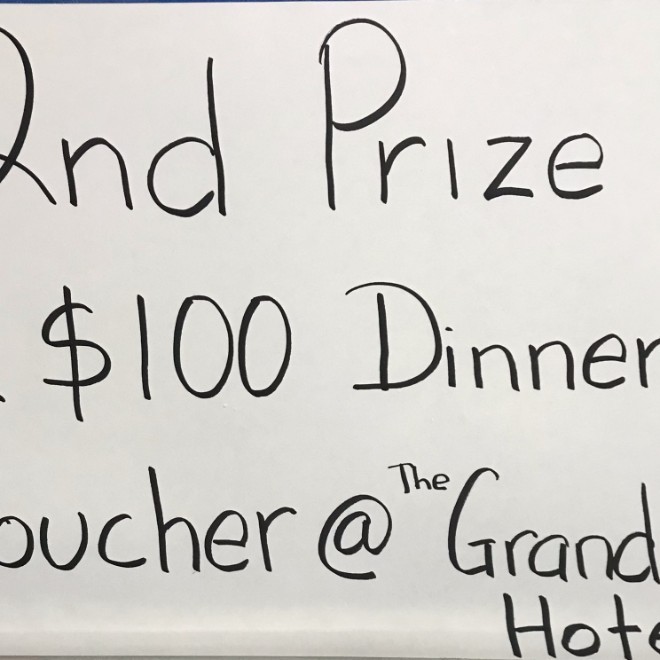 2nd Prize
$100 Dinner
oucher @ The Grand
Hote